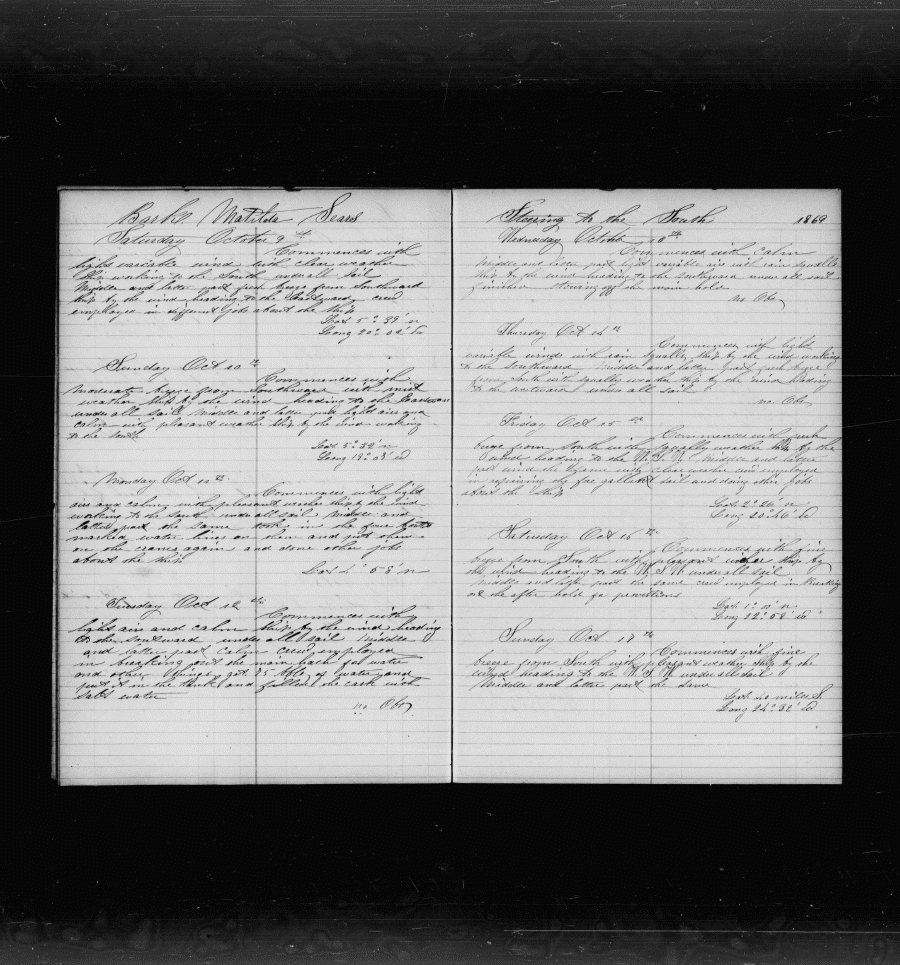 Bark Matilda Sears
Saturday October 9th
Commences with
light variable wind with clear weather
Ship working to the South under all sail
Middle and latter part fresh breeze from Southward
ship by the wind heading to the Eastward crew
employed in different jobs about the ship
Lat 5° 39' n
Long 20° 02' W
Sunday Oct 10 th
Commences with
moderate breeze from Southward with mist
weather ship by the wind heading to the Eastward
under all sail Middle and latter part light airs and
calm with pleasant weather ship by the wind working
to the South
Lat 5° 32' n
Long 19° 03' W
Monday Oct 11 th
Commences with light
airs and calm with pleasant weather ship by the wind
working to the South under all sail Middle and
latter part the same took in the four boats
marked water lines on them and put them
on the cranes again and done other jobs
about the ship
Lat 4° 58' n
Tuesday Oct 12 th
Commences with
light airs and calm ship by the wind heading
to the Southward under all sail Middle
and latter part calm crew employed
in breaking out the main hatch for water
and other things got 25 bbls of water and
put it in the and filled the cask with
salt water
no Obs
Steering to the South 1869
Wednesday October 13 th
Commences with Calm
Middle and latter part light variable airs with rain squalls
ship by the wind heading to the Southward under all sail
finished stowing off the main hold
no Obs
Thursday Oct 14 th
Commences with light
variable winds with rain squalls ship by the wind working
to the Southward Middle and latter part fresh breeze
from South with squally weather ship by the wind heading
to the westward under all sail
no. Obs
Friday Oct 15 th
Commences with fresh
breeze from South with squally weather ship by the
wind heading to the W.S.W Middle and latter
part wind the same with clear weather crew employed
in repairing the fore gallant sail and doing other jobs
about the ship
Lat 2° 26' n
Long 20° 46' W
Saturday Oct 16 th
Commences with fine
breeze from South with pleasant weather ship by
the wind heading to the W.S.W under all sail
Middle and latter part the same crew employed in breaking
out the after hold for provisions
Lat 1° 10' n
Long 22° 58' W
Sunday Oct 17 th
Commences with fine
breeze from South with pleasant weather ship by the
wind heading to the W.S.W under all sail
Middle and latter part the same
Lat 40 miles S.
Long 24° 32' W